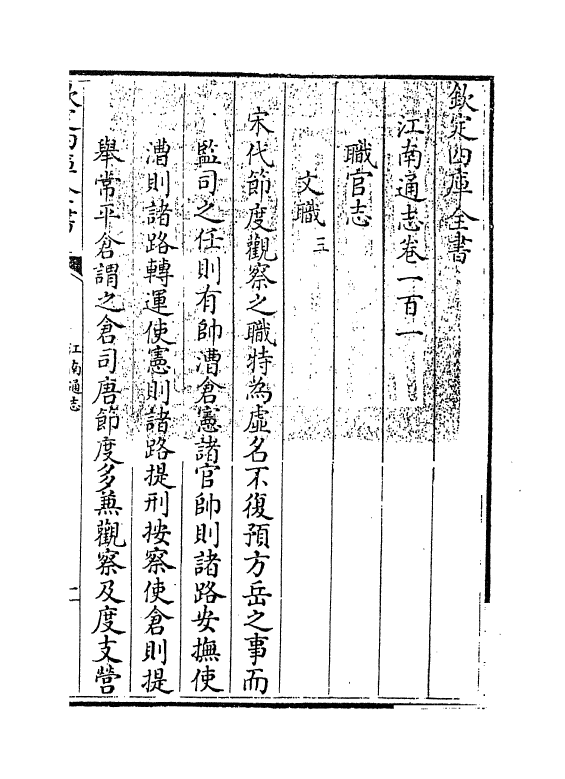 欽定四庫全書
江南通志卷一百一
職官志
文職三
宋代節度觀察之職特為虛名不復預方岳之事而
監司之任則有帥漕倉憲諸官帥則諸路安撫使
漕則諸路轉運使憲則諸路提刑按察使倉則提
舉常平倉謂之倉司唐節度多兼觀察及度支營
江南通志